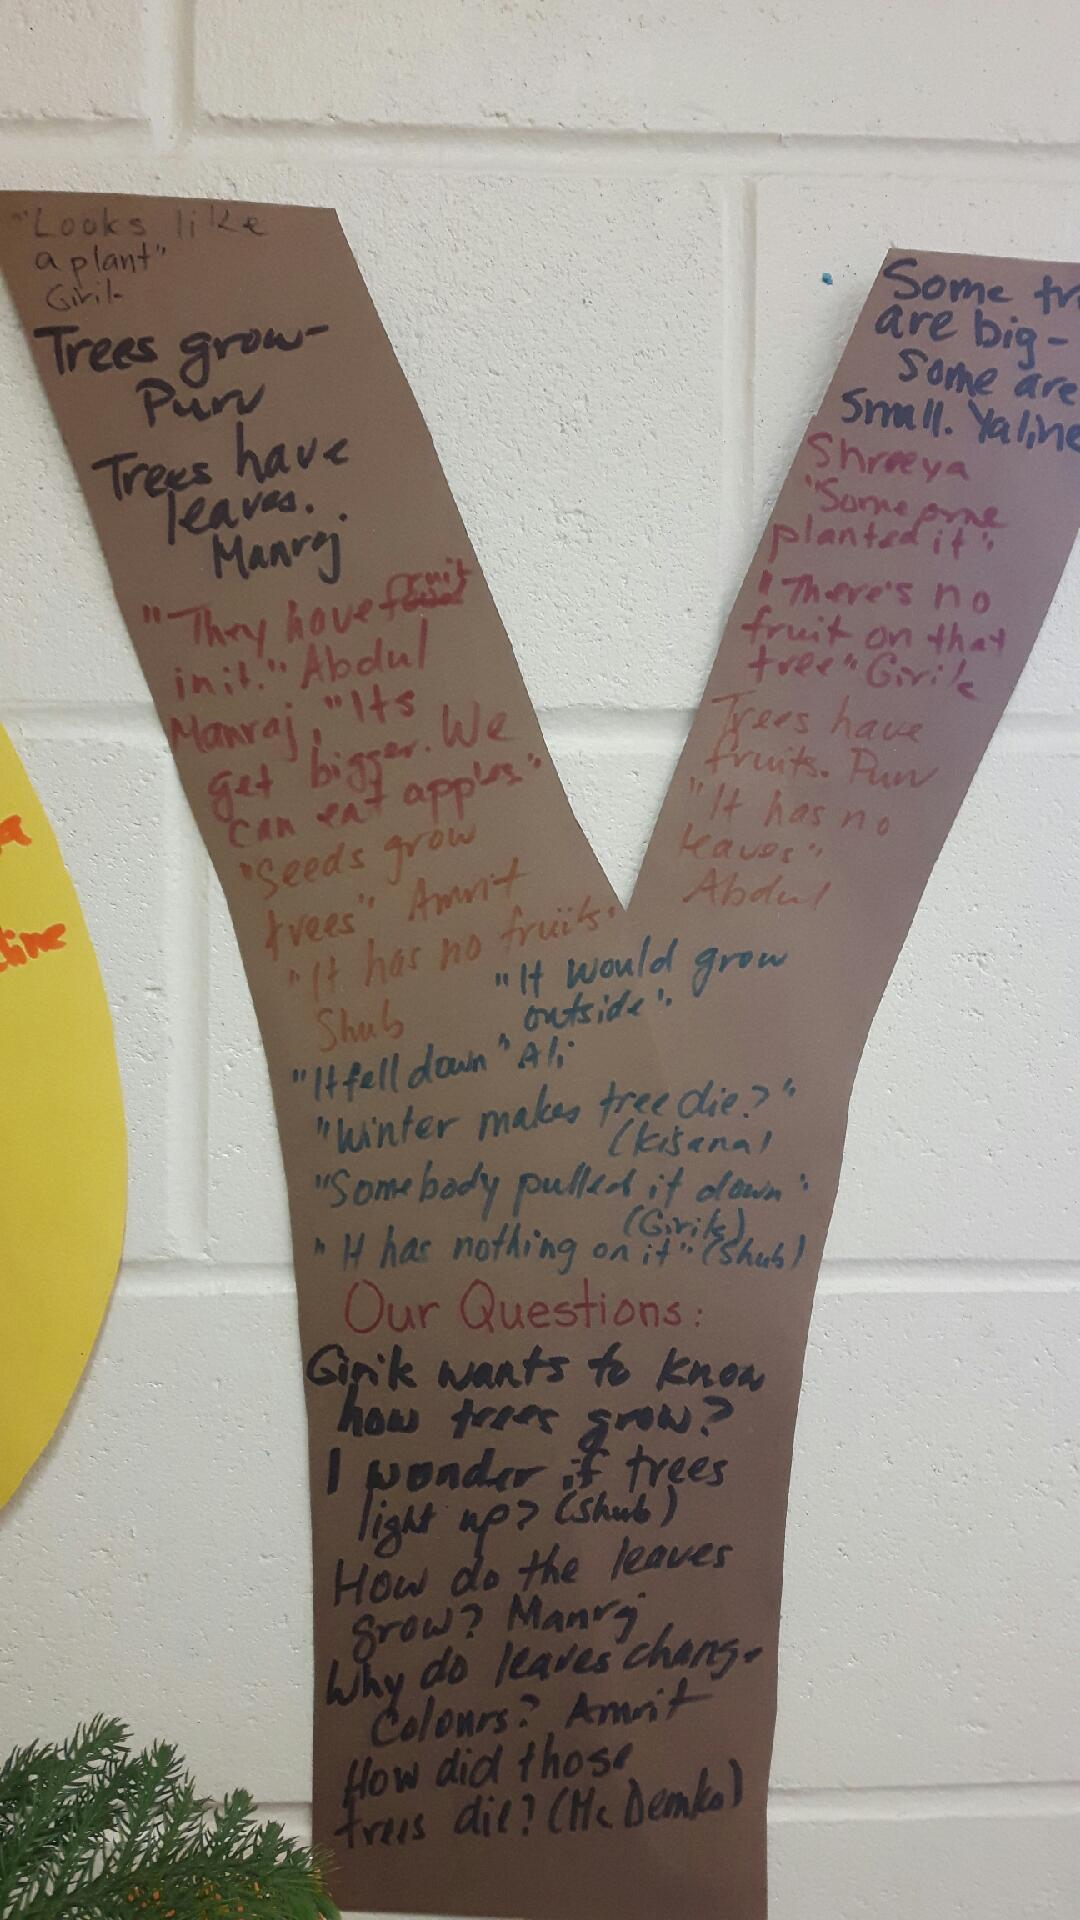 "Looks like
a plant"
Girik
Trees grow-
Purv
Trees have
leaves.
Manraj
"They have fruit
in it." Abdul
Manraj, "Its
get bigger. We
can eat apples."
"Seeds grow
trees" Amrit
"It has no fruits"
Shub
Some tr
are big-
some are
small. Yaline
Shreeya
"Some one
planted it".
"There's no
fruit on that
tree" Girik
Trees have
fruits. Purv
"It has no
leaves"
Abdul
"It would grow
outside".
"It fell down" Ali
"Winter makes tree die?"
(Kisana)
"Somebody pulled it down".
(Girik)
"It has nothing on it" (Shub)
Our Questions:
Girik wants to know
how trees grow?
I wonder if trees
light up? (Shub)
How do the leaves
grow? Manraj
Why do leaves change
colours? Amrit
How did those
trees die? (Mc Demko)